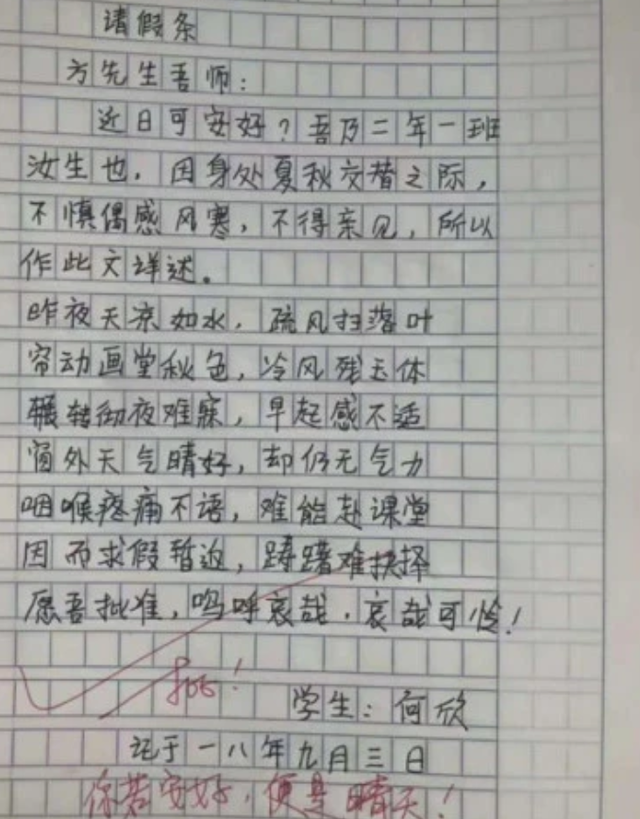 请假条
方先生吾师：
近日可安好？吾乃二年一班
汝生也，因身处夏秋交替之际，
不慎偶感风寒，不得亲见，所以
作此文详述。
昨夜天凉如水，疏风扫落叶
帘动画堂秋色，冷风残玉体
辗转彻夜难寐，早起感不适
窗外天气晴好，却仍无气力
咽喉疼痛不语，难能赴课堂
因而求假暂迫，踌躇难抉择
愿吾批准，呜呼哀哉．哀哉可怜！
批！
学生：何欣
记于一八年九月三日
你若安好，便是晴天！